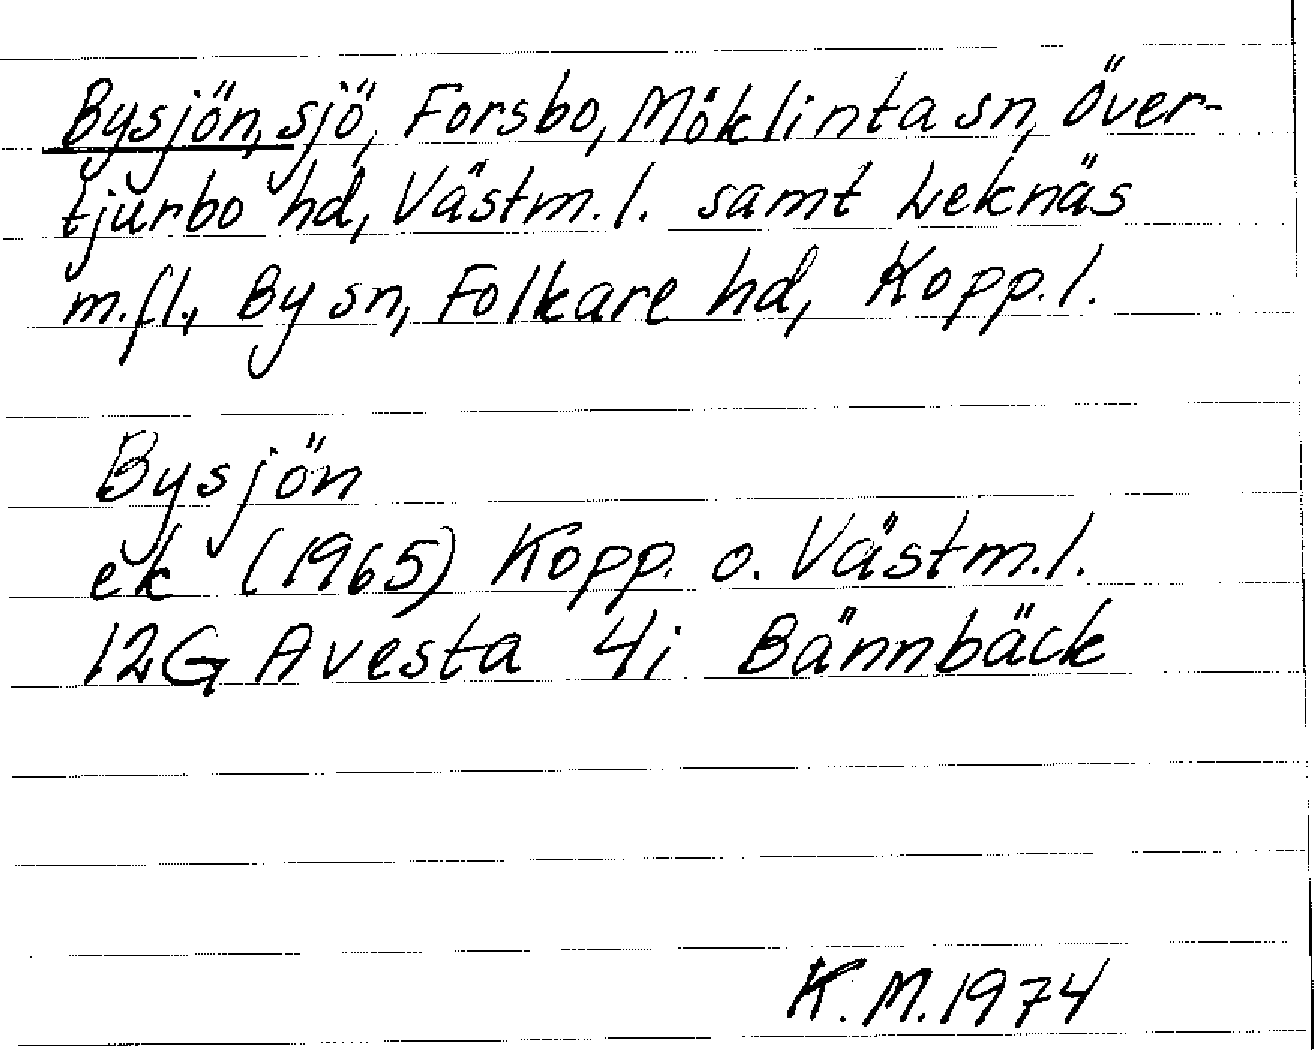 Bysjön, sjö, Forsbo, Möklinta sn, Över-
tjurbo hd, Västm.l. samt Leknäs
m.fl., By sn, Folkare hd, Kopp.l.
Bysjön
ek (1965) Kopp. o. Västm.l.
12G Avesta 4i Bännbäck
K.M.1974